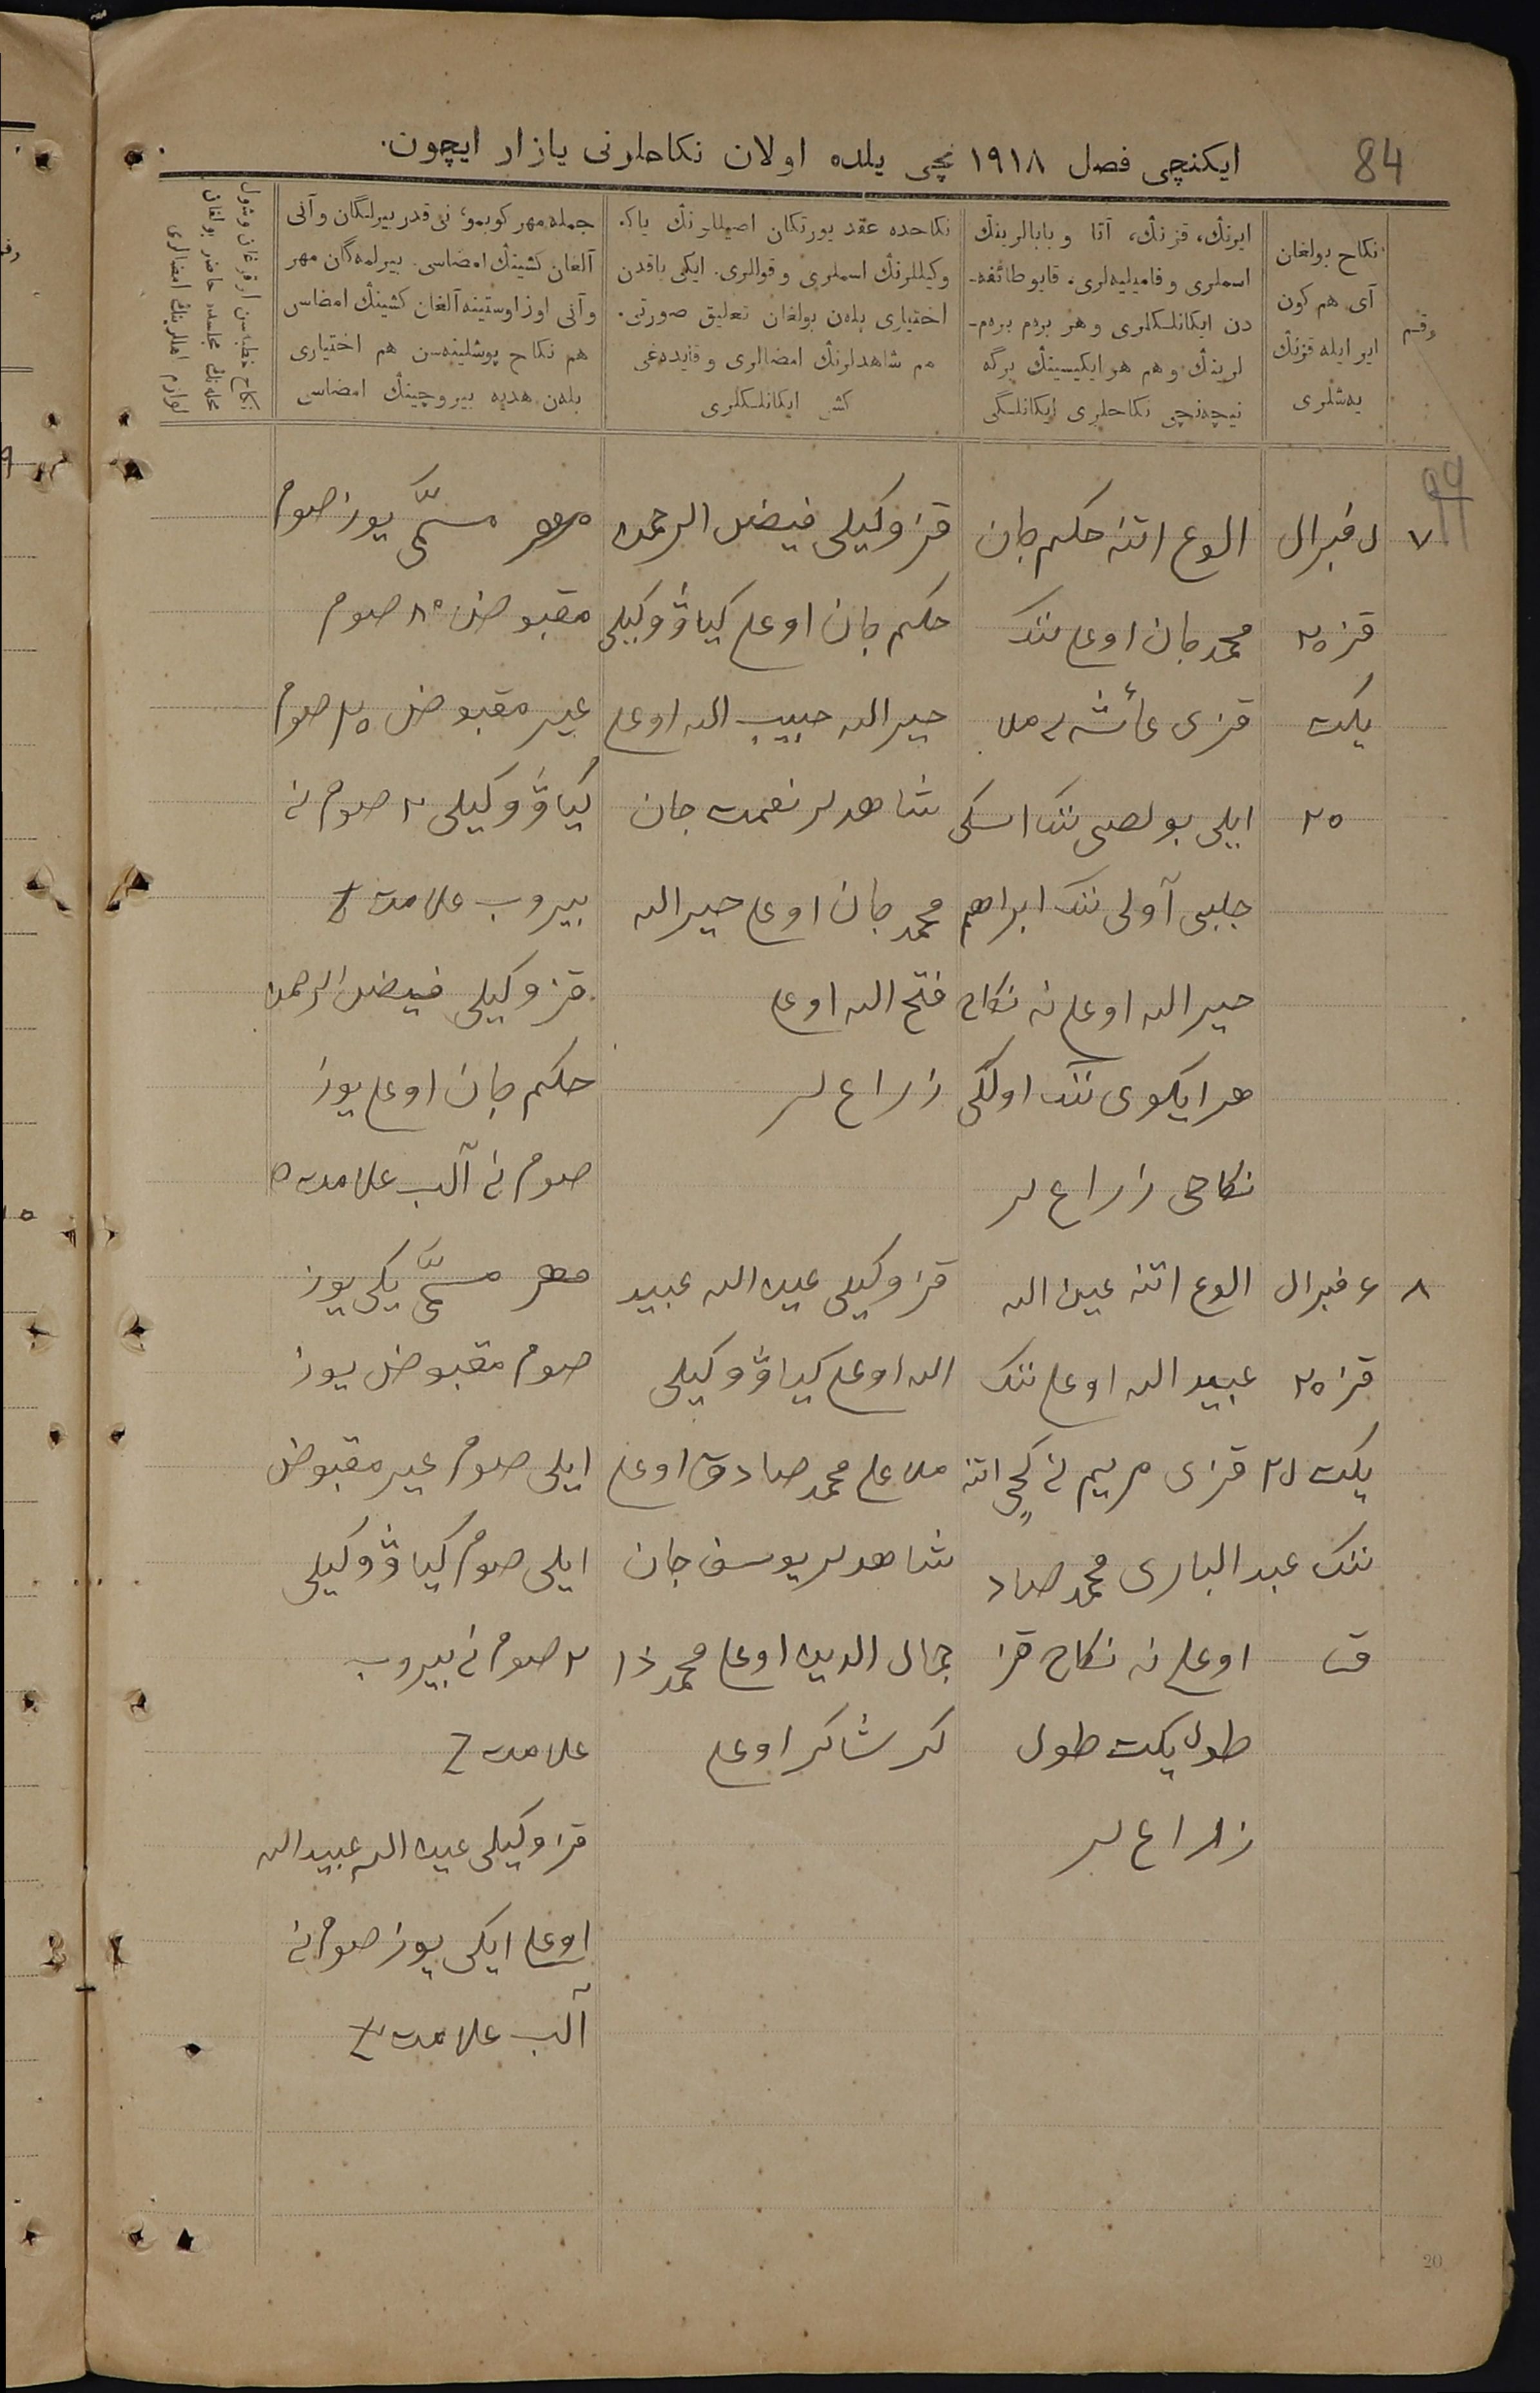 84
ایکنچی فصل ۱۹۱۸ نچی یلده اولان نکاحلرنی یازار ایچون.
رقم
نکاح بولغان
آی هم کون
ایر ایله قزنڭ
یەشلری
ایرنڭ، قزنڭ، آتا و بابالرینڭ
اسملری و فامیلیەلری. قایو طائفه-
دن ایکانلکلری و هر برەم برەم-
لرینڭ و هم هر ایکیسینڭ برگه
نیچەنچی نکاحلری ایکانلگی
نکاحده عقد یورتکان اصیللرنڭ یاکه
وکیللرنڭ اسملری و قوللری. ایکی یاقدن
اختیاری بلەن بولغان تعلیق صورتی.
هم شاهدلرنڭ امضالری و قایدەغی
کشی ایکانلکلری
جمله مهر کوبمو، نی قدر بیرلگان و آنی
آلغان کشینڭ امضاسی. بیرلمەگان مهر
و آنی اوز اوستینه آلغان کشینڭ امضاسی
هم نکاح پوشلینەسن هم اختیاری
بلەن هدیه بیروچینڭ امضاسی
نکاح خطبەسن اوقوغان وشول
محلەنڭ مجلسده حاضر بولغان
99
۷
فبرال
قز ۲۵
یکت
۲۵
الوع اتنه حکم جان
محمد جان اوعلی ننک
قزی عائشه نی ملا
ایلی بولصی ننک اسکی
جلبی آولی ننک ابراهم
خیر الله اوعلی نه نکاح
هر ایکوی ننک اولکی
نکاحی زراع لر
قز وکیلی فیض الرحمن
حکم جان اوعلی کیاو وکیلی
خیر الله حبیب الله اوعلی
شاهدلر نعمت جان
محمد جان اوعلی خیر الله
فتح الله اوعلی
زراع لر
مهر مسمّی یوز صوم
مقبوض ۸۰ صوم
غیر مقبوض ۲۰ صوم
کیاو وکیلی ۲ صوم نی
بیروب علامت
قز وکیلی فیض الرحمن
حکم جان اوعلی یوز
صوم نی آلب علامت
۸
۶ فبرال
قز ۲۵
یکت
الوع اتنه عین الله
عبید الله اوعلی ننک
قزی مریم نی کچی اتنه
ننک عبد الباری محمد صاد
ق اوعلی نه نکاح قز
طول یکت طول
زراع لر
قز وکیلی عین الله عبید
الله اوعلی کیاو وکیلی
ملا علی محمد صادق اوعلی
شاهدلر یوسف جان
جمال الدین اوعلی محمد ذا
کر شاکر اوعلی
مهر مسمّی یکی یوز
صوم مقبوض یوز
ایلی صوم غیر مقبوض
ایلی صوم کیاو وکیلی
۲ صوم نی بیروب
علامت
قز وکیلی عین الله عبید الله
اوعلی ایکی یوز صوم نی
آلب علامت
20